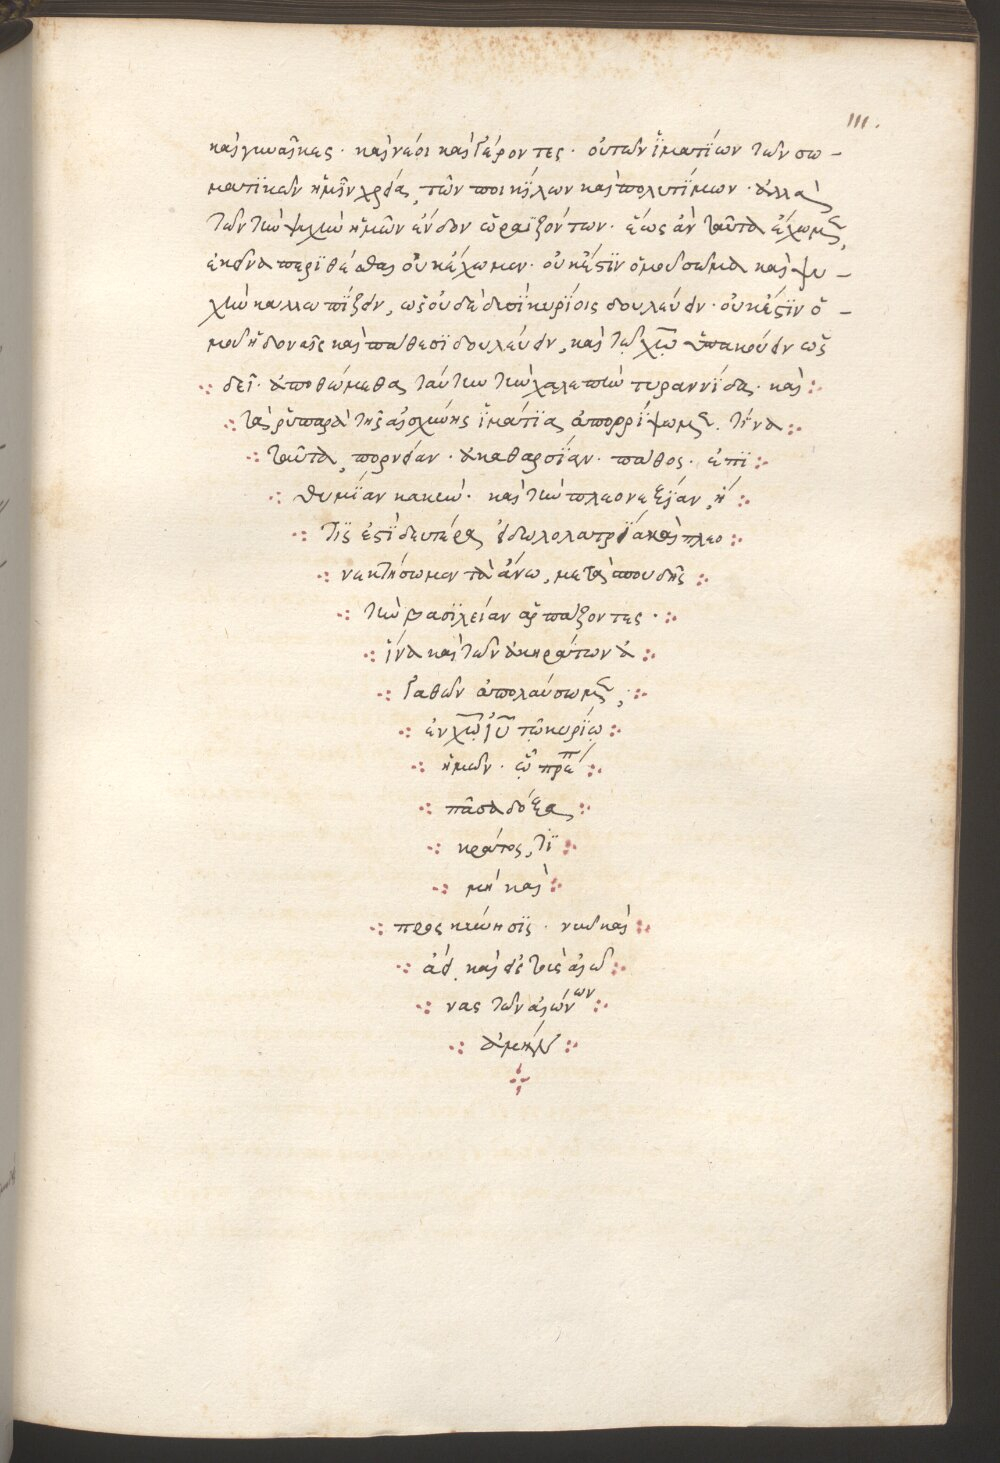 111.
καὶ γυναῖκες · καὶ νέοι καὶ γέροντες · οὐ τῶν ἱματίων τῶν σω-
ματικῶν ἡμῖν χρεία, τῶν ποικίλων καὶ πολυτίμων · ἀλλὰ
τῶν τὴν ψυχὴν ἡμῶν ἔνδον ὡραϊζόντων · ἕως ἂν ταῦτα ἔχωμεν,
ἐκεῖνα περιθέσθαι οὐκ ἔχωμεν · οὐκ ἔστιν ὁμοῦ σῶμα καὶ ψυ-
χὴν καλλωπίζειν, ὡς οὐδὲ δυσὶ κυρίοις δουλεύειν · οὐκ ἔστιν ὁ-
μοῦ ἡδοναῖς καὶ πάθεσι δουλεύειν, καὶ τῷ χω ὑπακούειν ὡς
δεῖ · ἀποθώμεθα ταύτην τὴν χαλεπὴν τυραννίδα · καὶ
τὰ ῥυπαρὰ τῆς αἰσχύνης ἱμάτια ἀπορρίψωμεν. τίνα
ταῦτα, πορνείαν · ἀκαθαρσίαν · πάθος · ἐπι
θυμίαν κακὴν · καὶ τὴν πλεονεξίαν, ἥ
τις ἐστὶ δευτέρα εἰδωλολατρία καὶ πλεο
νεκτήσωμεν τὰ ἄνω, μετὰ σπουδῆς
τὴν βασιλείαν ἁρπάζοντες ·
ἵνα καὶ τῶν ἀκηράτων ἀ
γαθῶν ἀπολαύσωμεν,
ἐν χω ιυ τῷ κυρίῳ
ἡμῶν · ᾧ πρέπει
πᾶσα δόξα,
κράτος, τι
μὴ καὶ
προσκύνησις · νῦν καὶ
ἀεὶ, καὶ εἰς τοὺς αἰῶ
νας τῶν αἰώνων
ἀμήν